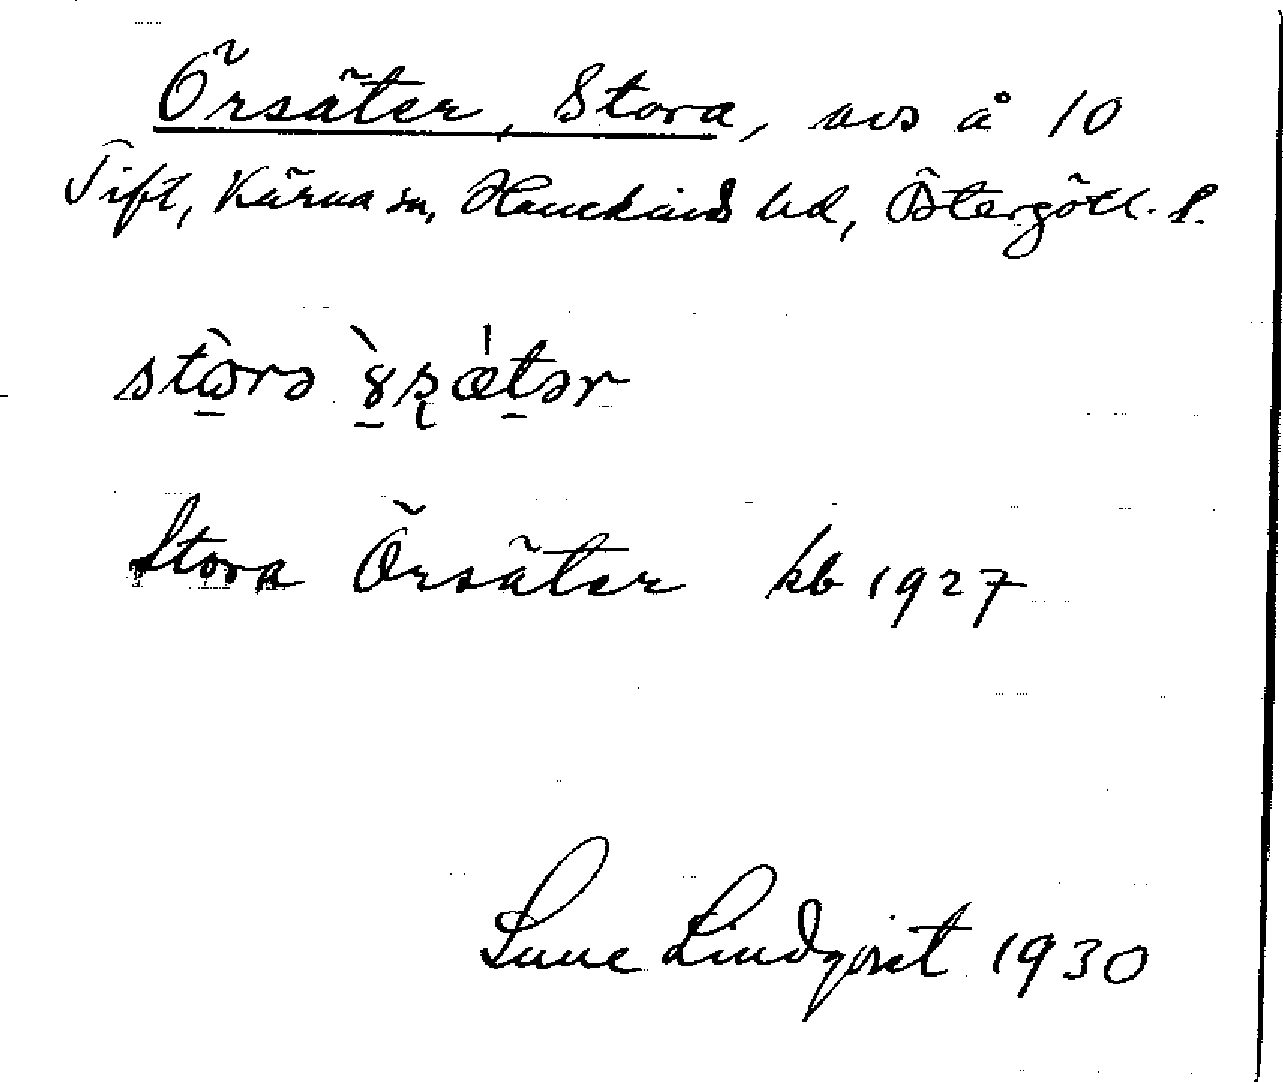 Örsäter, Stora, avs å 10
Tift, Kärna sn, Hanekinds hd, Östergötl. l.
stòrə `ȣʂætər
Stora Örsäter kb 1927
Sune Lindqvist 1930